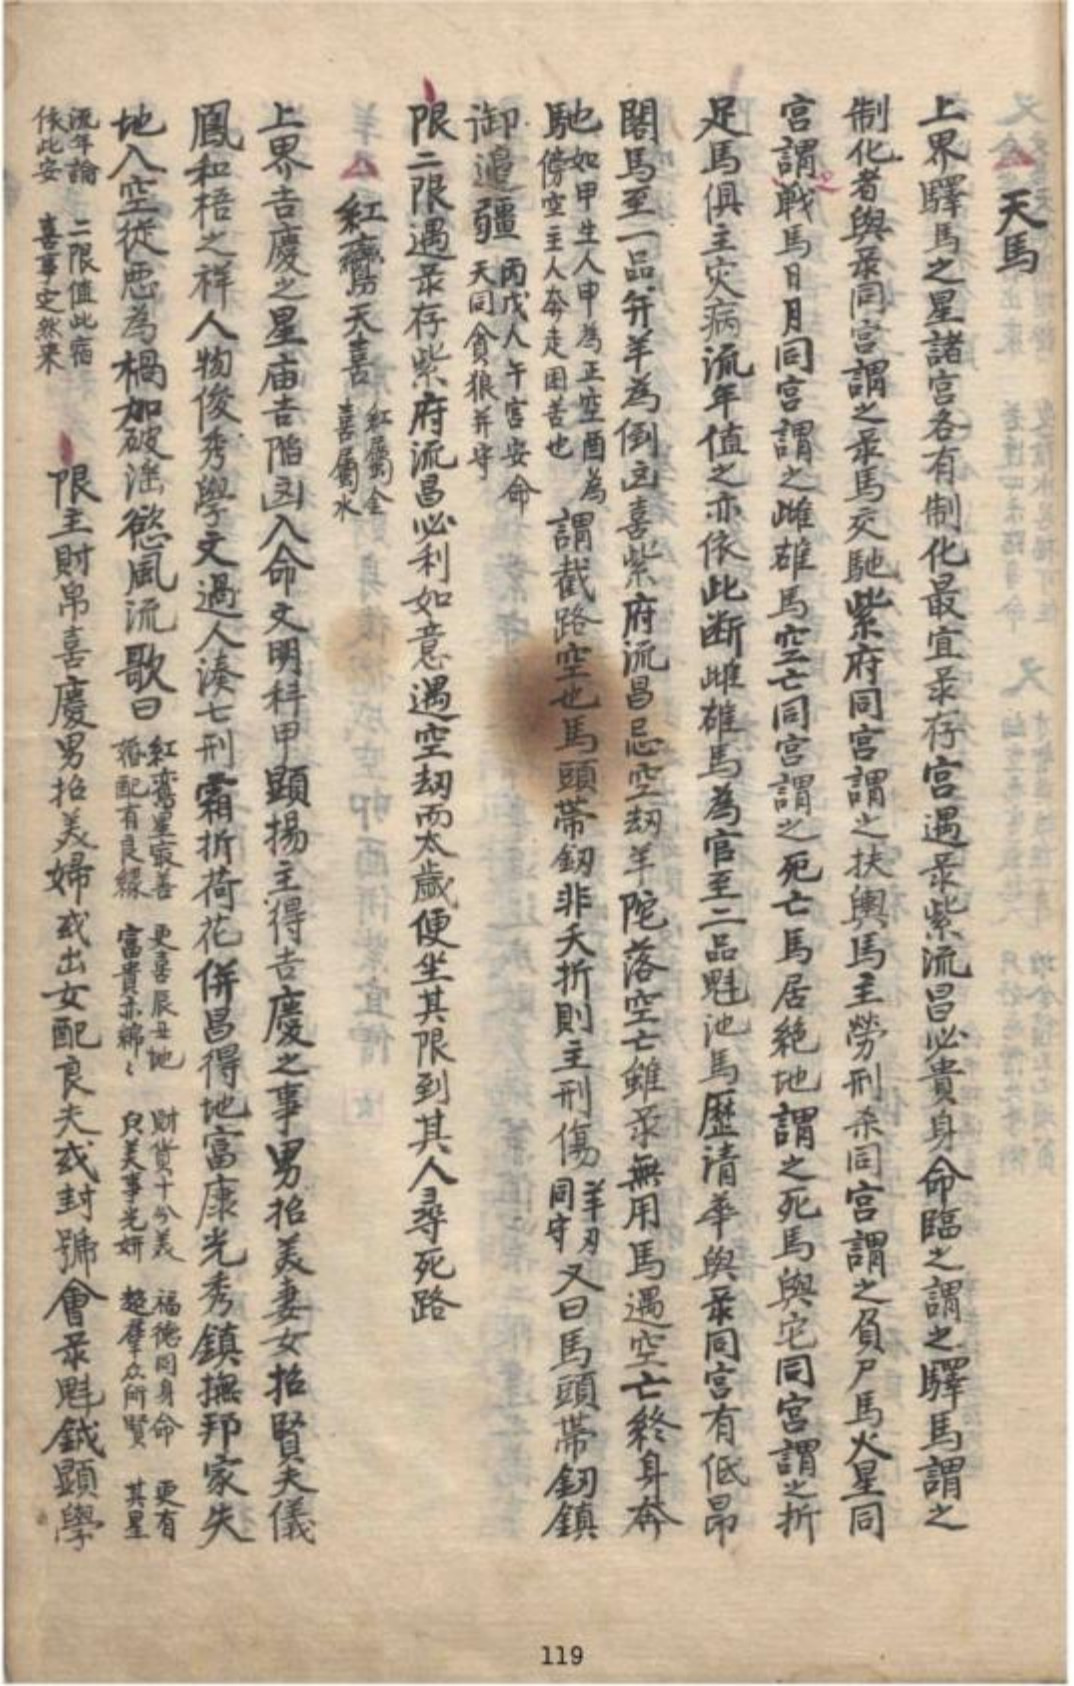 △天馬
上界驛馬之星諸宮各有制化最宜彔存宮遇彔紫流昌必貴身命臨之謂之驛馬謂之
制化者與彔同宮謂之彔馬交馳紫府同宮謂之扶輿馬主勞刑杀同宮謂之負尸馬火星同
宮謂戰馬日月同宮謂之雌雄馬空亡同宮謂之死亡馬居絕地謂之死馬與它同宮謂之折
足馬俱主灾病流年值之亦依此断雌雄馬為官至二品魁池馬歷清華與彔同宮有低昂
閣馬至一品弁羊為倒囪喜紫府流昌忌空刼羊陀落空亡雖彔無用馬遇空亡終身奔
馳如甲生人申為正空酉為
傍空主人奔走困苦也
謂截路空也馬頭帶釰非夭折則主刑傷羊刃
同守
又曰馬頭帶釰鎮
御邉疆丙戊人午宮安命
天同貪狼并守
限二限遇彔存紫府流昌必利如意遇空刼而太歲便坐其限到其人尋死路
△紅鸞天喜紅屬金
喜屬水
上界吉慶之星庙吉陷囪入命文明科甲顕揚主得吉慶之事男招美妻女招賢夫儀
鳳和梧之祥人物俊秀學文過人湊七刑霜折荷花併昌得地富康光秀鎮撫邦家失
地入空從悪為禍加破滛慾風流歌曰
紅鸾星寂善
婚配有良緣
更喜辰丑地
富貴亦綿〻
财貨十分美
艮美事光妍
福德同身命
超羣众所賢
更有
其星
流年論
依此安
二限值此宿
喜事定然来
限主財帛喜慶男招美婦或出女配良夫或封號會彔魁鉞顕學
119